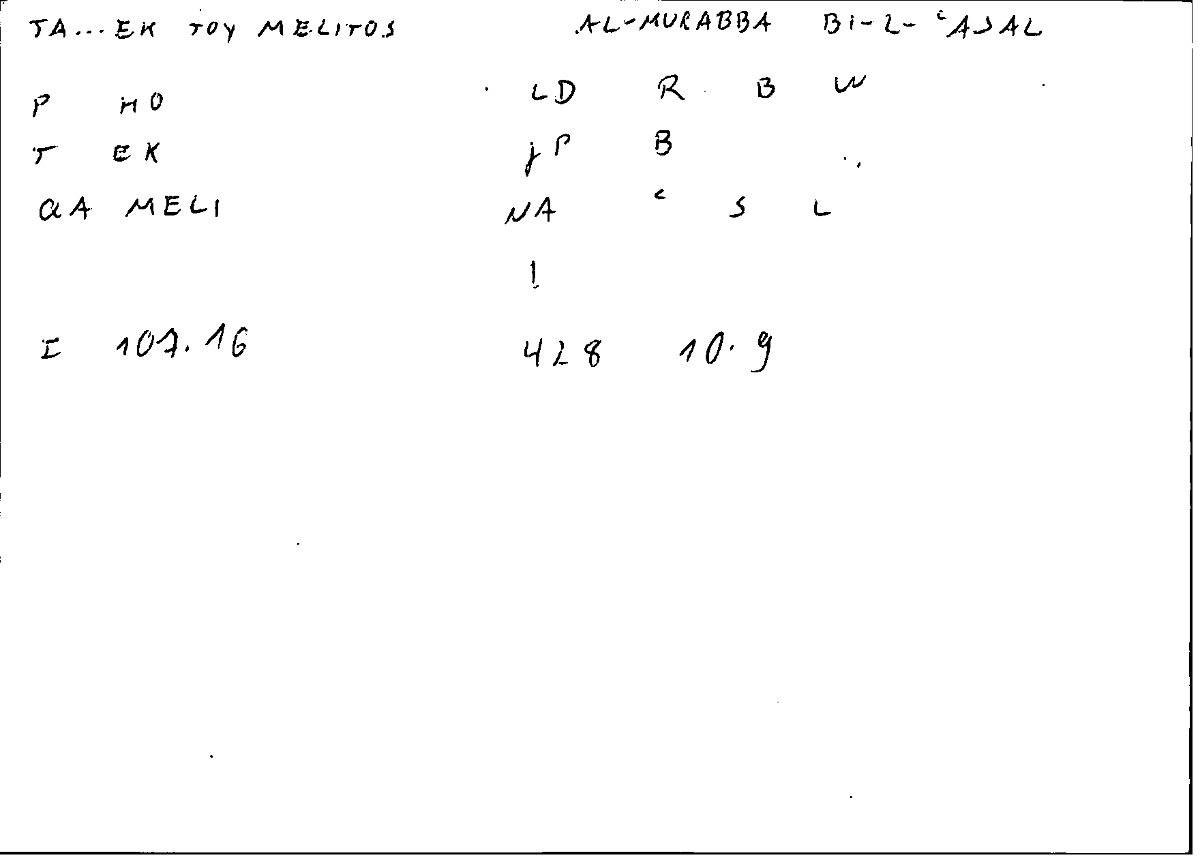 TA...EK TOY MELITOS AL-MURABBA BI-L-ʿASAL
P HO LD R B W
T EK jP B
QA MELI NA ʿ S L
!
I 107.16 428 10.9